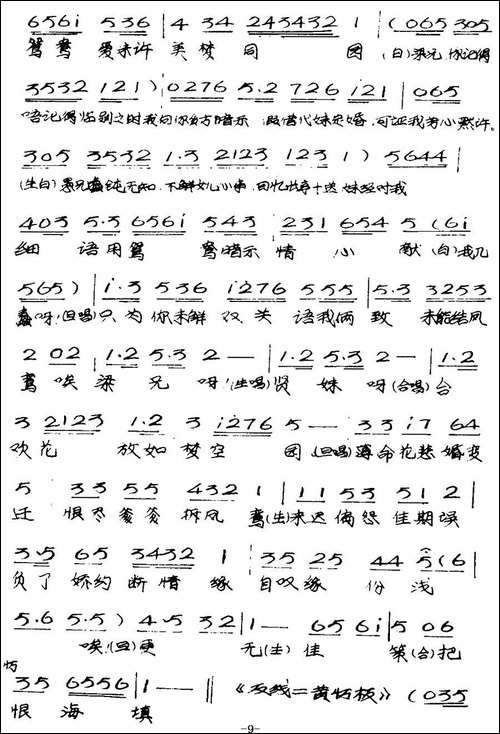 656i 536 | 4 34 243432 1 | (065 305
鸳鸯 爱未许 美梦 同 圆 (白)梁兄 你记得
3532 121) | 0276 5.2 726 i21 | 065
唔记得临别之时我向你多方暗示 代妹 婚 可 我 小 许。
305 3532 1.3 2123 123 1 ) 5644 |
(生白) 愚兄蠢钝无知 不解 小 回忆 十送 妹 对我
403 5.3 656i 543 | 231 654 5 (6i
细 语用鸳 鸯暗示 情 心 献 (白)我几
565) | i.3 536 i276 555 | 5.3 3253
蠢呀!(旦唱)只为你未解 双关 语我俩 致 未能结凤
2 02 | 1.2 5.3 2 — | 1.2 5.3 2 — | 1.2
鸾 唉 梁 兄 呀!(生唱)贤 妹 呀(合唱)合
3 2123 1.2 3 i276 5 — 33 i7 64
欢花 放如 梦空 圆 (旦唱)薄命花愁婚变
5 33 55 432 1 | 11 53 51 2 |
迁 恨尽爹爹 拆凤 鸾(生)来迟偏怨佳期误
3.5 65 3432 1 | 35 25 44 5 (6 |
负了 娇约 断情 缘 自叹缘 份 浅
5.6 5.5 ) 4.5 32 | 1 — 65 6i | 5 06
唉(旦)更 无(生)佳 策(合)把
35 6556 | 1 — ‖ 《反线二黄 板》 (035
恨 海 填
-9-